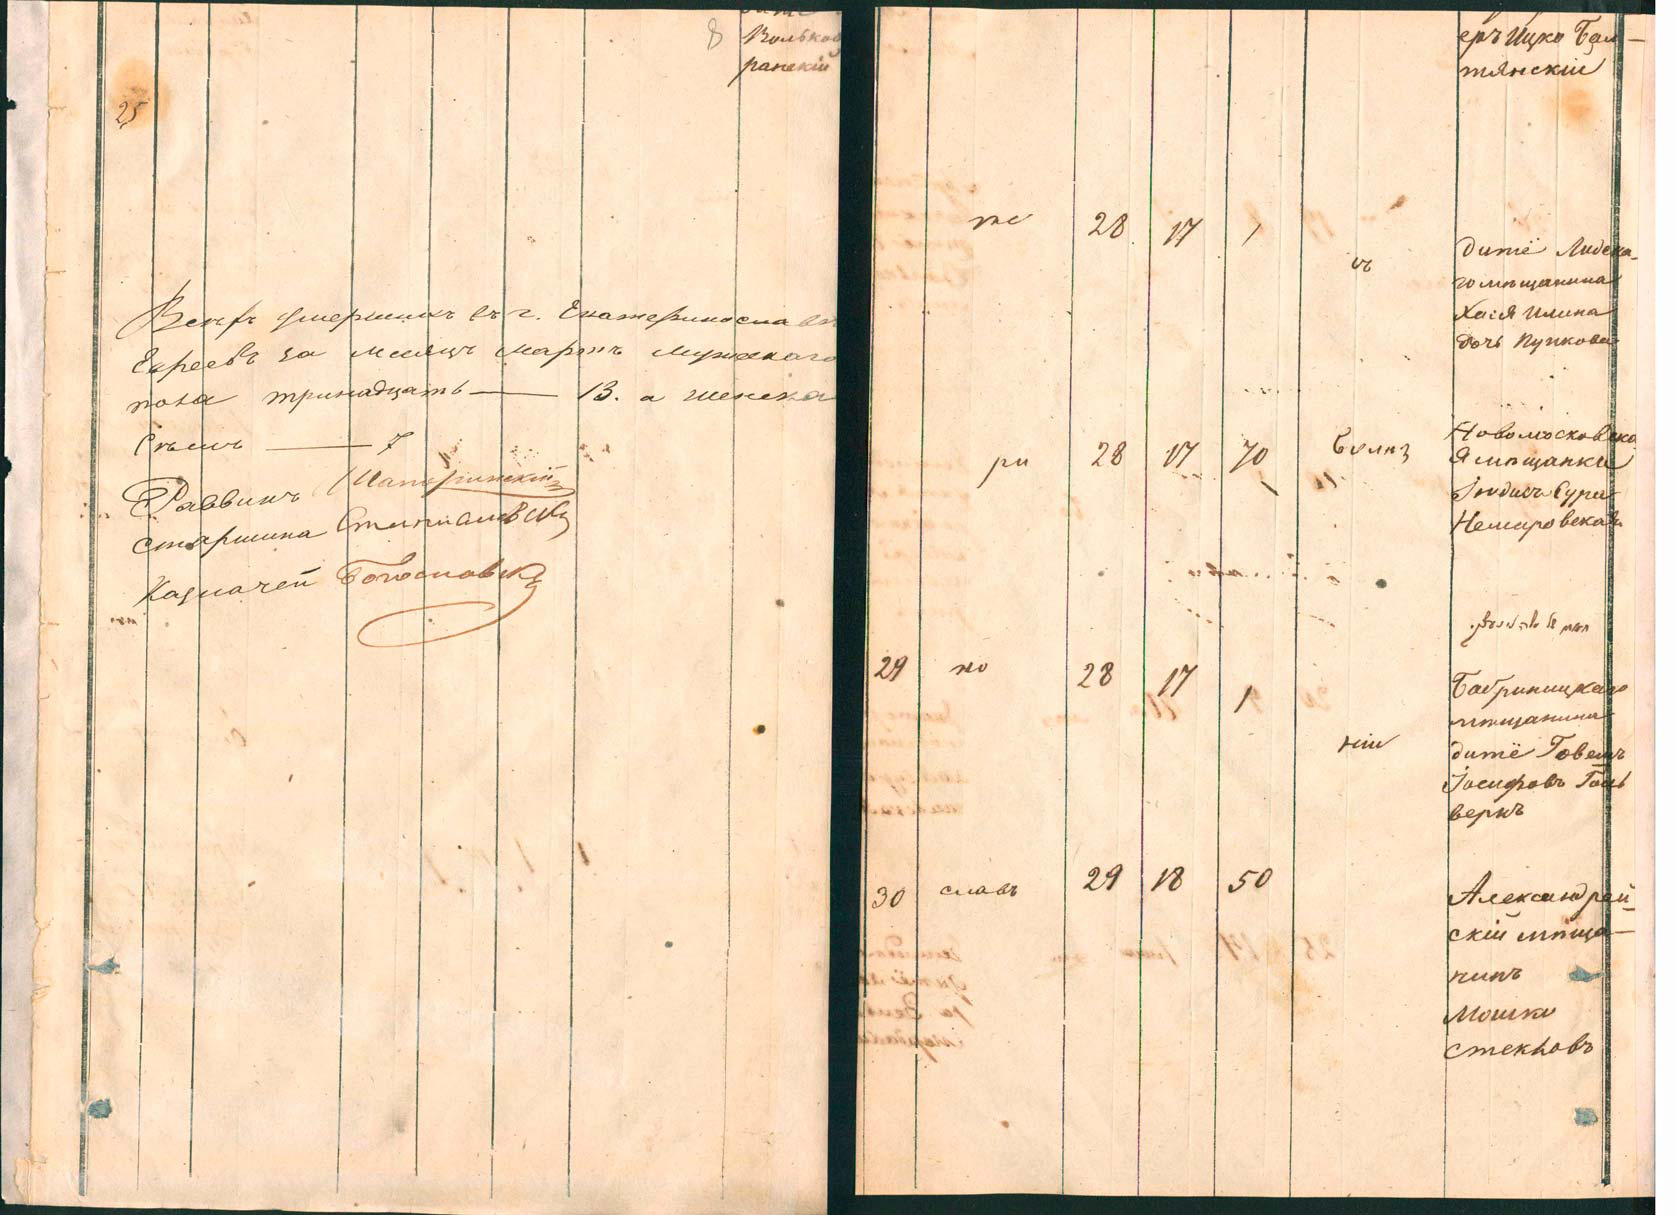 8
Вольков
ранскій
25
Всѣхъ умершихъ въ г. Екатеринославѣ
Евреевъ за мѣсяцъ Мартъ мужскаго
пола тринадцать — 13. а женска
Седмь — 7
Раввинъ Шапиринскій
Старшина
Казначей Богославск
еръ Ицко Бал—
тянскій
же 28 17 1
съ
дитё Лидска-
го мѣщанина
Хася Илина
дочь Пупкова
ри 28 17 70
болѣз
Новомосковска
я мѣщанка
Іудисъ Сура
Немировская
29 но 28 17 1
ніи
Бобринецкаго
мѣщанина
дитё Говешъ
Іосифовъ Голь
веркъ
30 славъ 29 18 50
Александрій—
скій мѣща—
нинъ
Мошко
Стекловъ